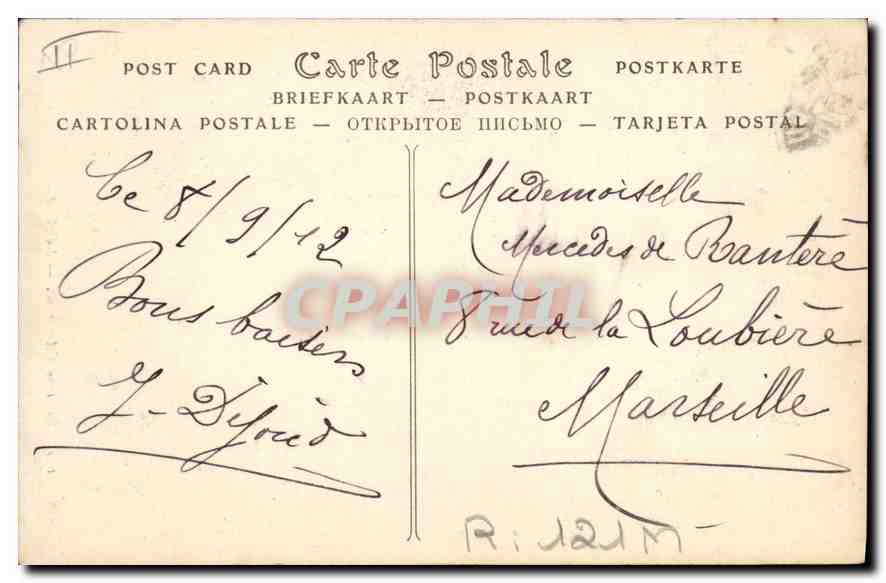 II
POST CARD Carte Postale POSTKARTE
BRIEFKAART — POSTKAART
CARTOLINA POSTALE — ОТКРЫТОЕ ПИСЬМО — TARJETA POSTAL
Ce 8/9/12
Bons baisers
Mademoiselle
Mercedes de Rantère
8 rue de la Loubière
Marseille
CPAPHIL
R: 121M